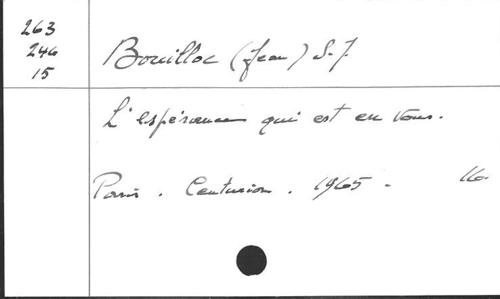 263
246
15
Bouilloc (Jean) S.J
L'espérance qui est en vous.
Paris . Centurion . 1965 - 16